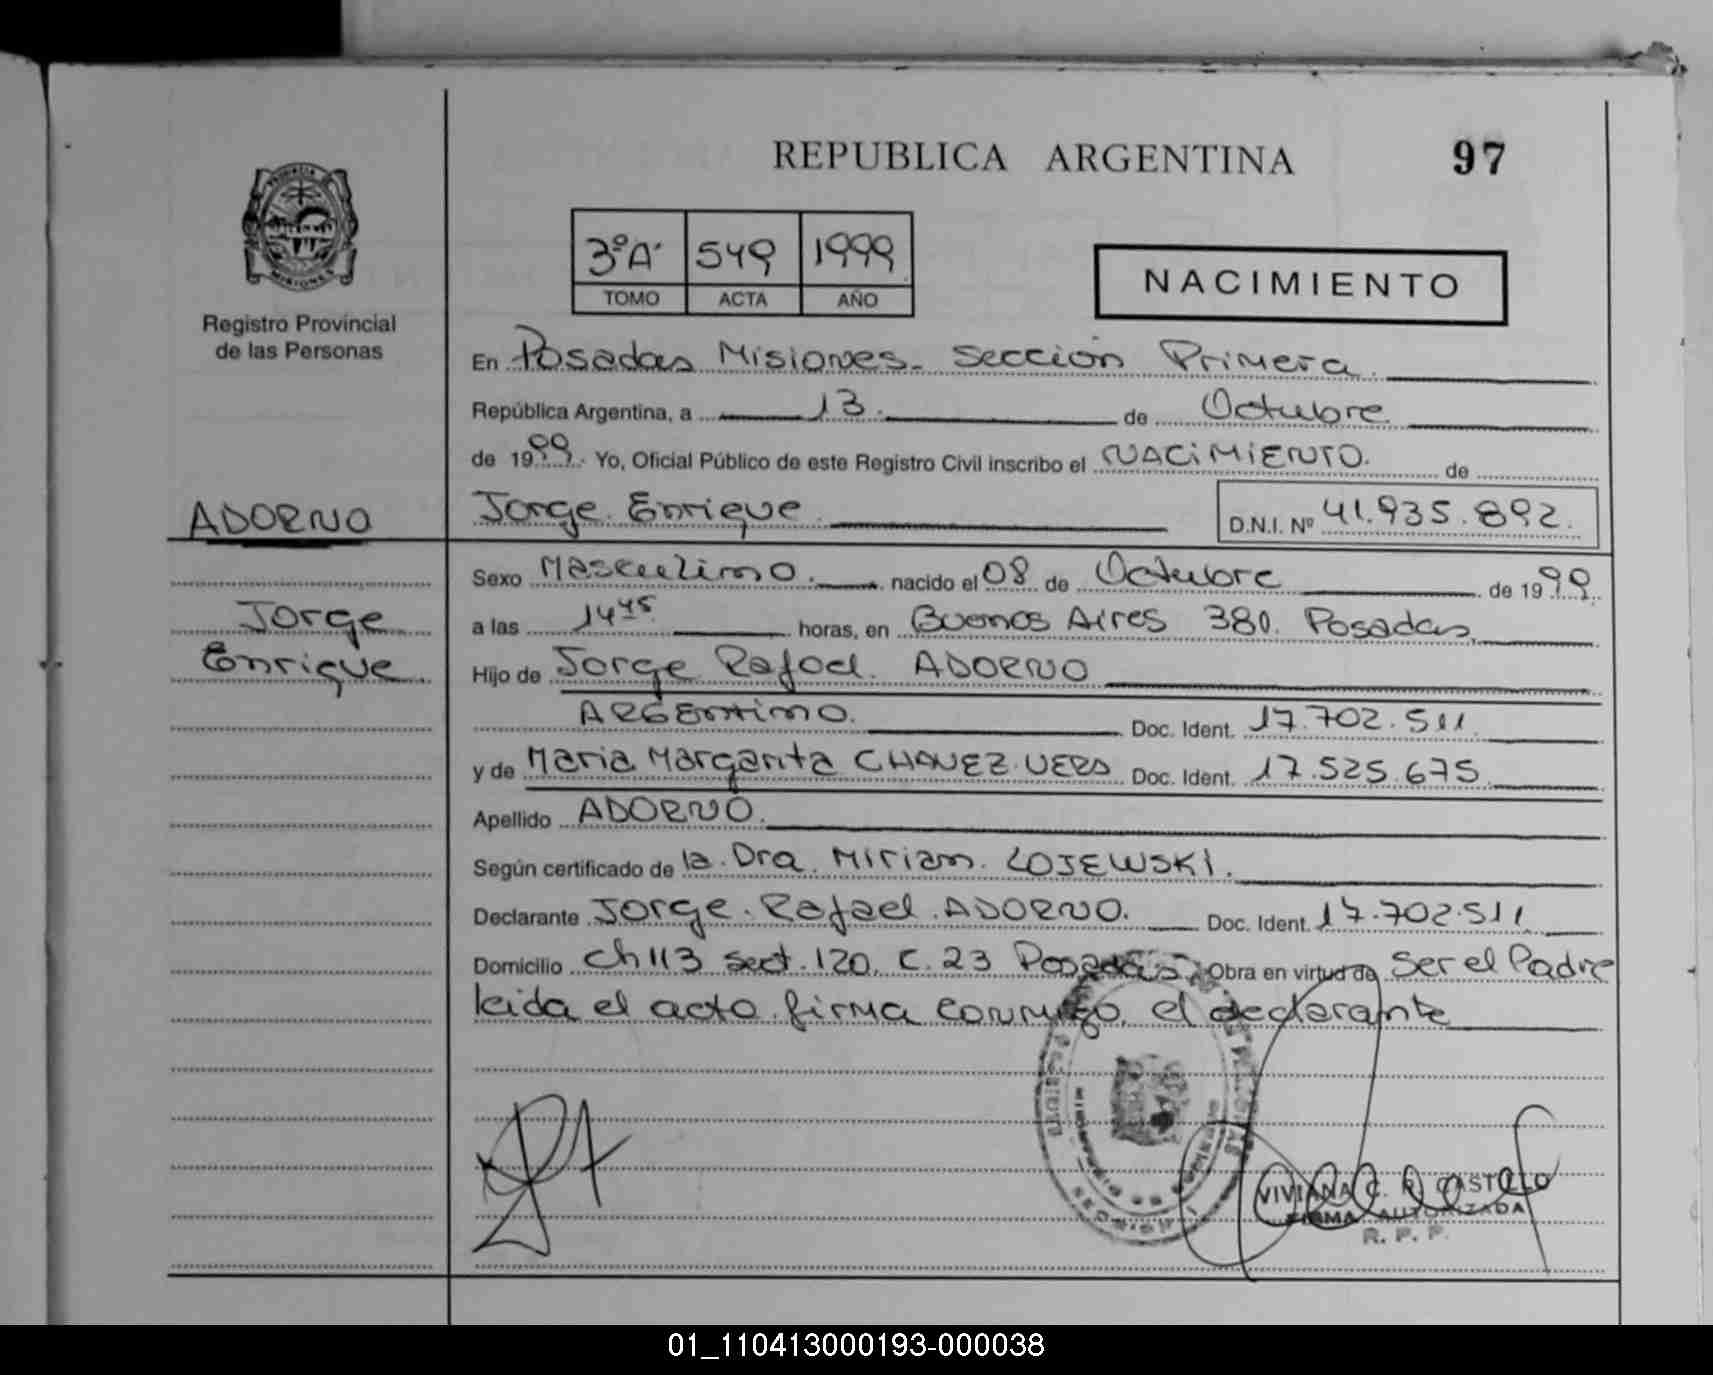 REPUBLICA ARGENTINA 97
3ºA 549 1999
TOMO ACTA AÑO
NACIMIENTO
Registro Provincial
de las Personas
En Posadas Misiones. Sección Primera.
República Argentina, a 13. de Octubre
de 1999. Yo, Oficial Público de este Registro Civil inscribo el NACIMIENTO. de
ADORNO
Jorge Enrique D.N.I. Nº 41.935.892.
Jorge
Enrique
Sexo Masculino. nacido el 08 de Octubre de 1999.
a las 14 45 horas, en Buenos Aires 380. Posadas
Hijo de Jorge Rafael. ADORNO
Argentino. Doc. Ident. 17.702.511
y de Maria Margarita CHAVEZ VERA Doc. Ident. 17.525.675.
Apellido ADORNO.
Según certificado de la Dra. Miriam. LOJEWSKI.
Declarante Jorge. Rafael. ADORNO. Doc. Ident. 17.702.511
Domicilio ch 113 sect. 120. C. 23 Posadas, Obra en virtud de ser el Padre
leida el acta firma conmigo el declarante
VIVIANA C. R. CASTILLO
FIRMA AUTORIZADA
R. P. P.
01_110413000193-000038